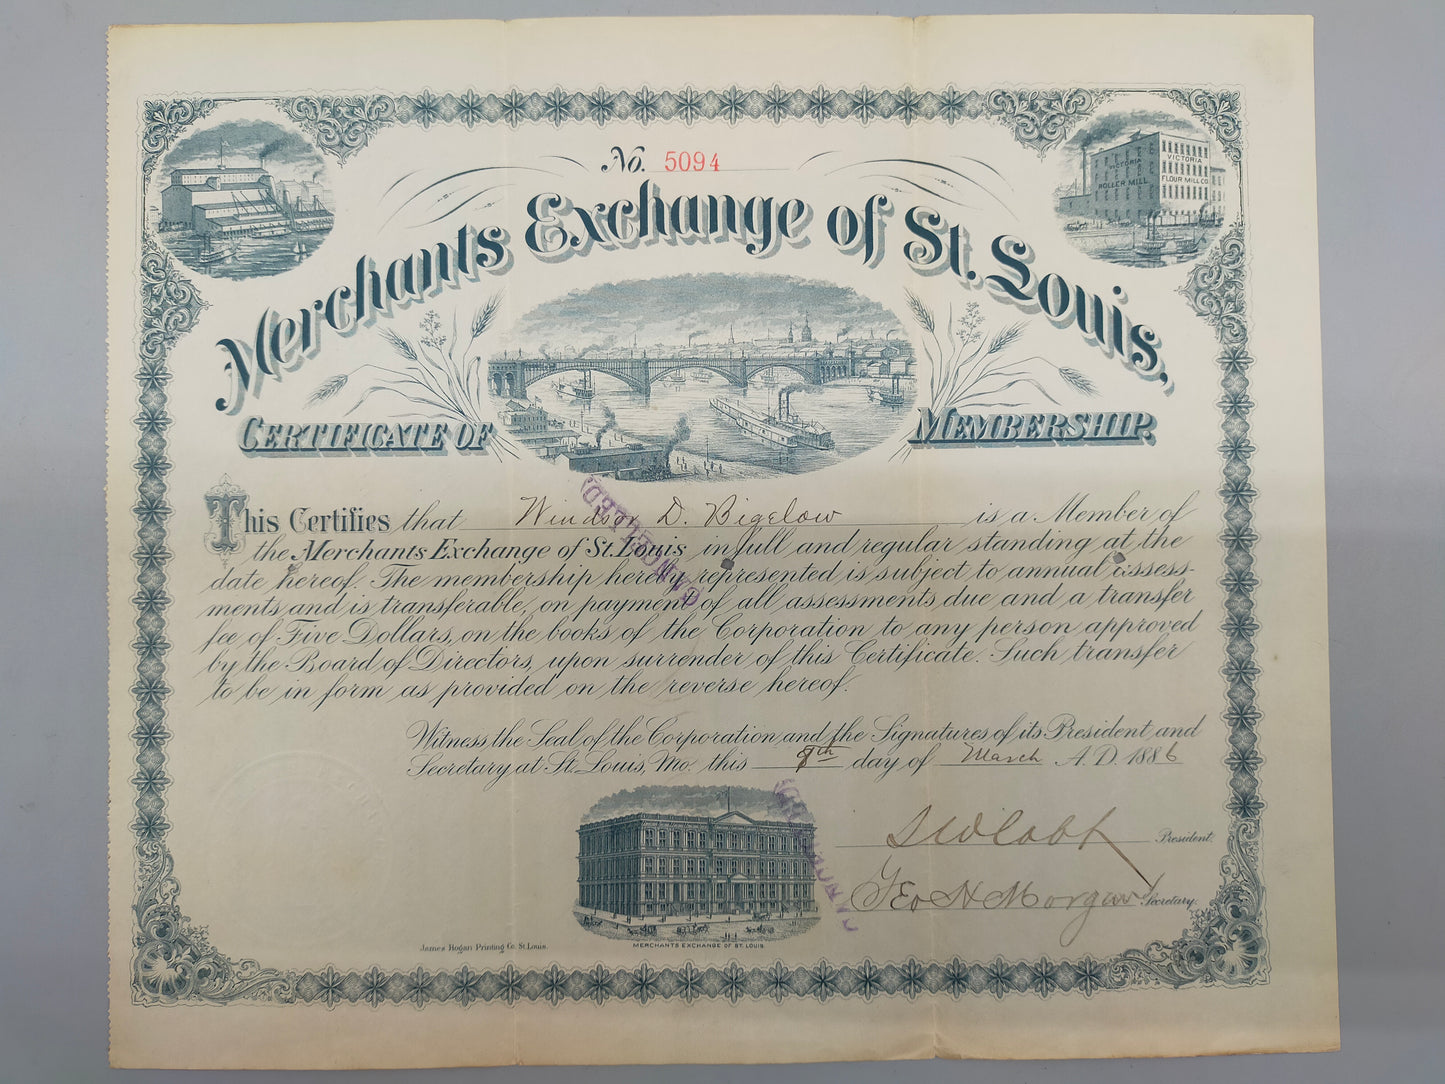 No. 5094
VICTORIA
ROLLER MILL
VICTORIA
FLOUR MILL CO
Merchants Exchange of St. Louis,
CERTIFICATE OF MEMBERSHIP.
This Certifies that Windsor D. Bigelow is a Member of
the Merchants Exchange of St. Louis, in full and regular standing at the
date hereof. The membership hereby represented is subject to annual assess-
ments and is transferable, on payment of all assessments due and a transfer
fee of Five Dollars, on the books of the Corporation to any person approved
by the Board of Directors, upon surrender of this Certificate. Such transfer
to be in form as provided on the reverse hereof.
CANCELLED
Witness, the Seal of the Corporation, and the Signatures of its President and
Secretary at St. Louis, Mo. this 9th day of March A.D. 1886
CANCELLED
S W Cobb President.
Geo H Morgan Secretary.
MERCHANTS EXCHANGE OF ST. LOUIS
James Hogan Printing Co. St. Louis.